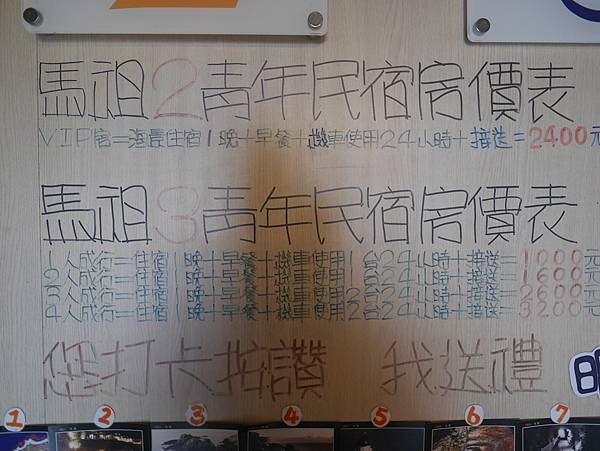 馬祖2青年民宿房價表
VIP房=海景住宿1晚+早餐+機車使用24小時+接送=2400元
馬祖3青年民宿房價表
1人成行=住宿1晚+早餐+機車使用1台24小時+接送=1000元
2人成行=住宿1晚+早餐+機車使用1台24小時+接送=1600元
3人成行=住宿1晚+早餐+機車使用2台24小時+接送=2600元
4人成行=住宿1晚+早餐+機車使用2台24小時+接送=3200元
您打卡按讚 我送禮
1 2 3 4 5 6 7